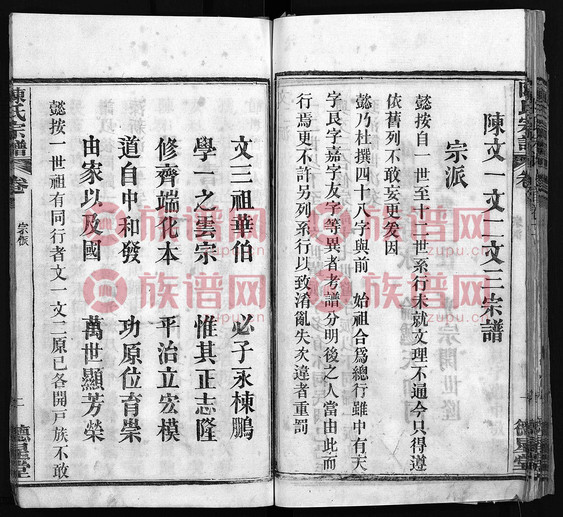 陳文一文二文三宗譜
宗派
懿按自一世至十二世系行未就文理不通今只得遵
依舊列不敢妄更爰因
懿乃杜撰四十八字與前 始祖合爲總行雖中有天
字良字嘉字友字等異者考譜分明後之人當由此而
行焉更不許另列系行以致淆亂失次違者重罰
文三祖華伯 必子永棟鵬
學一之雲宗 惟其正志隆
修齊端化本 平治立宏模
道自中和發 功原位育崇
由家以及國 萬世顯芳榮
懿按一世祖有同行者文一文二原已各開戸族不敢
陳氏宗譜 卷 宗派
德星堂
族谱网
www.zupu.cn